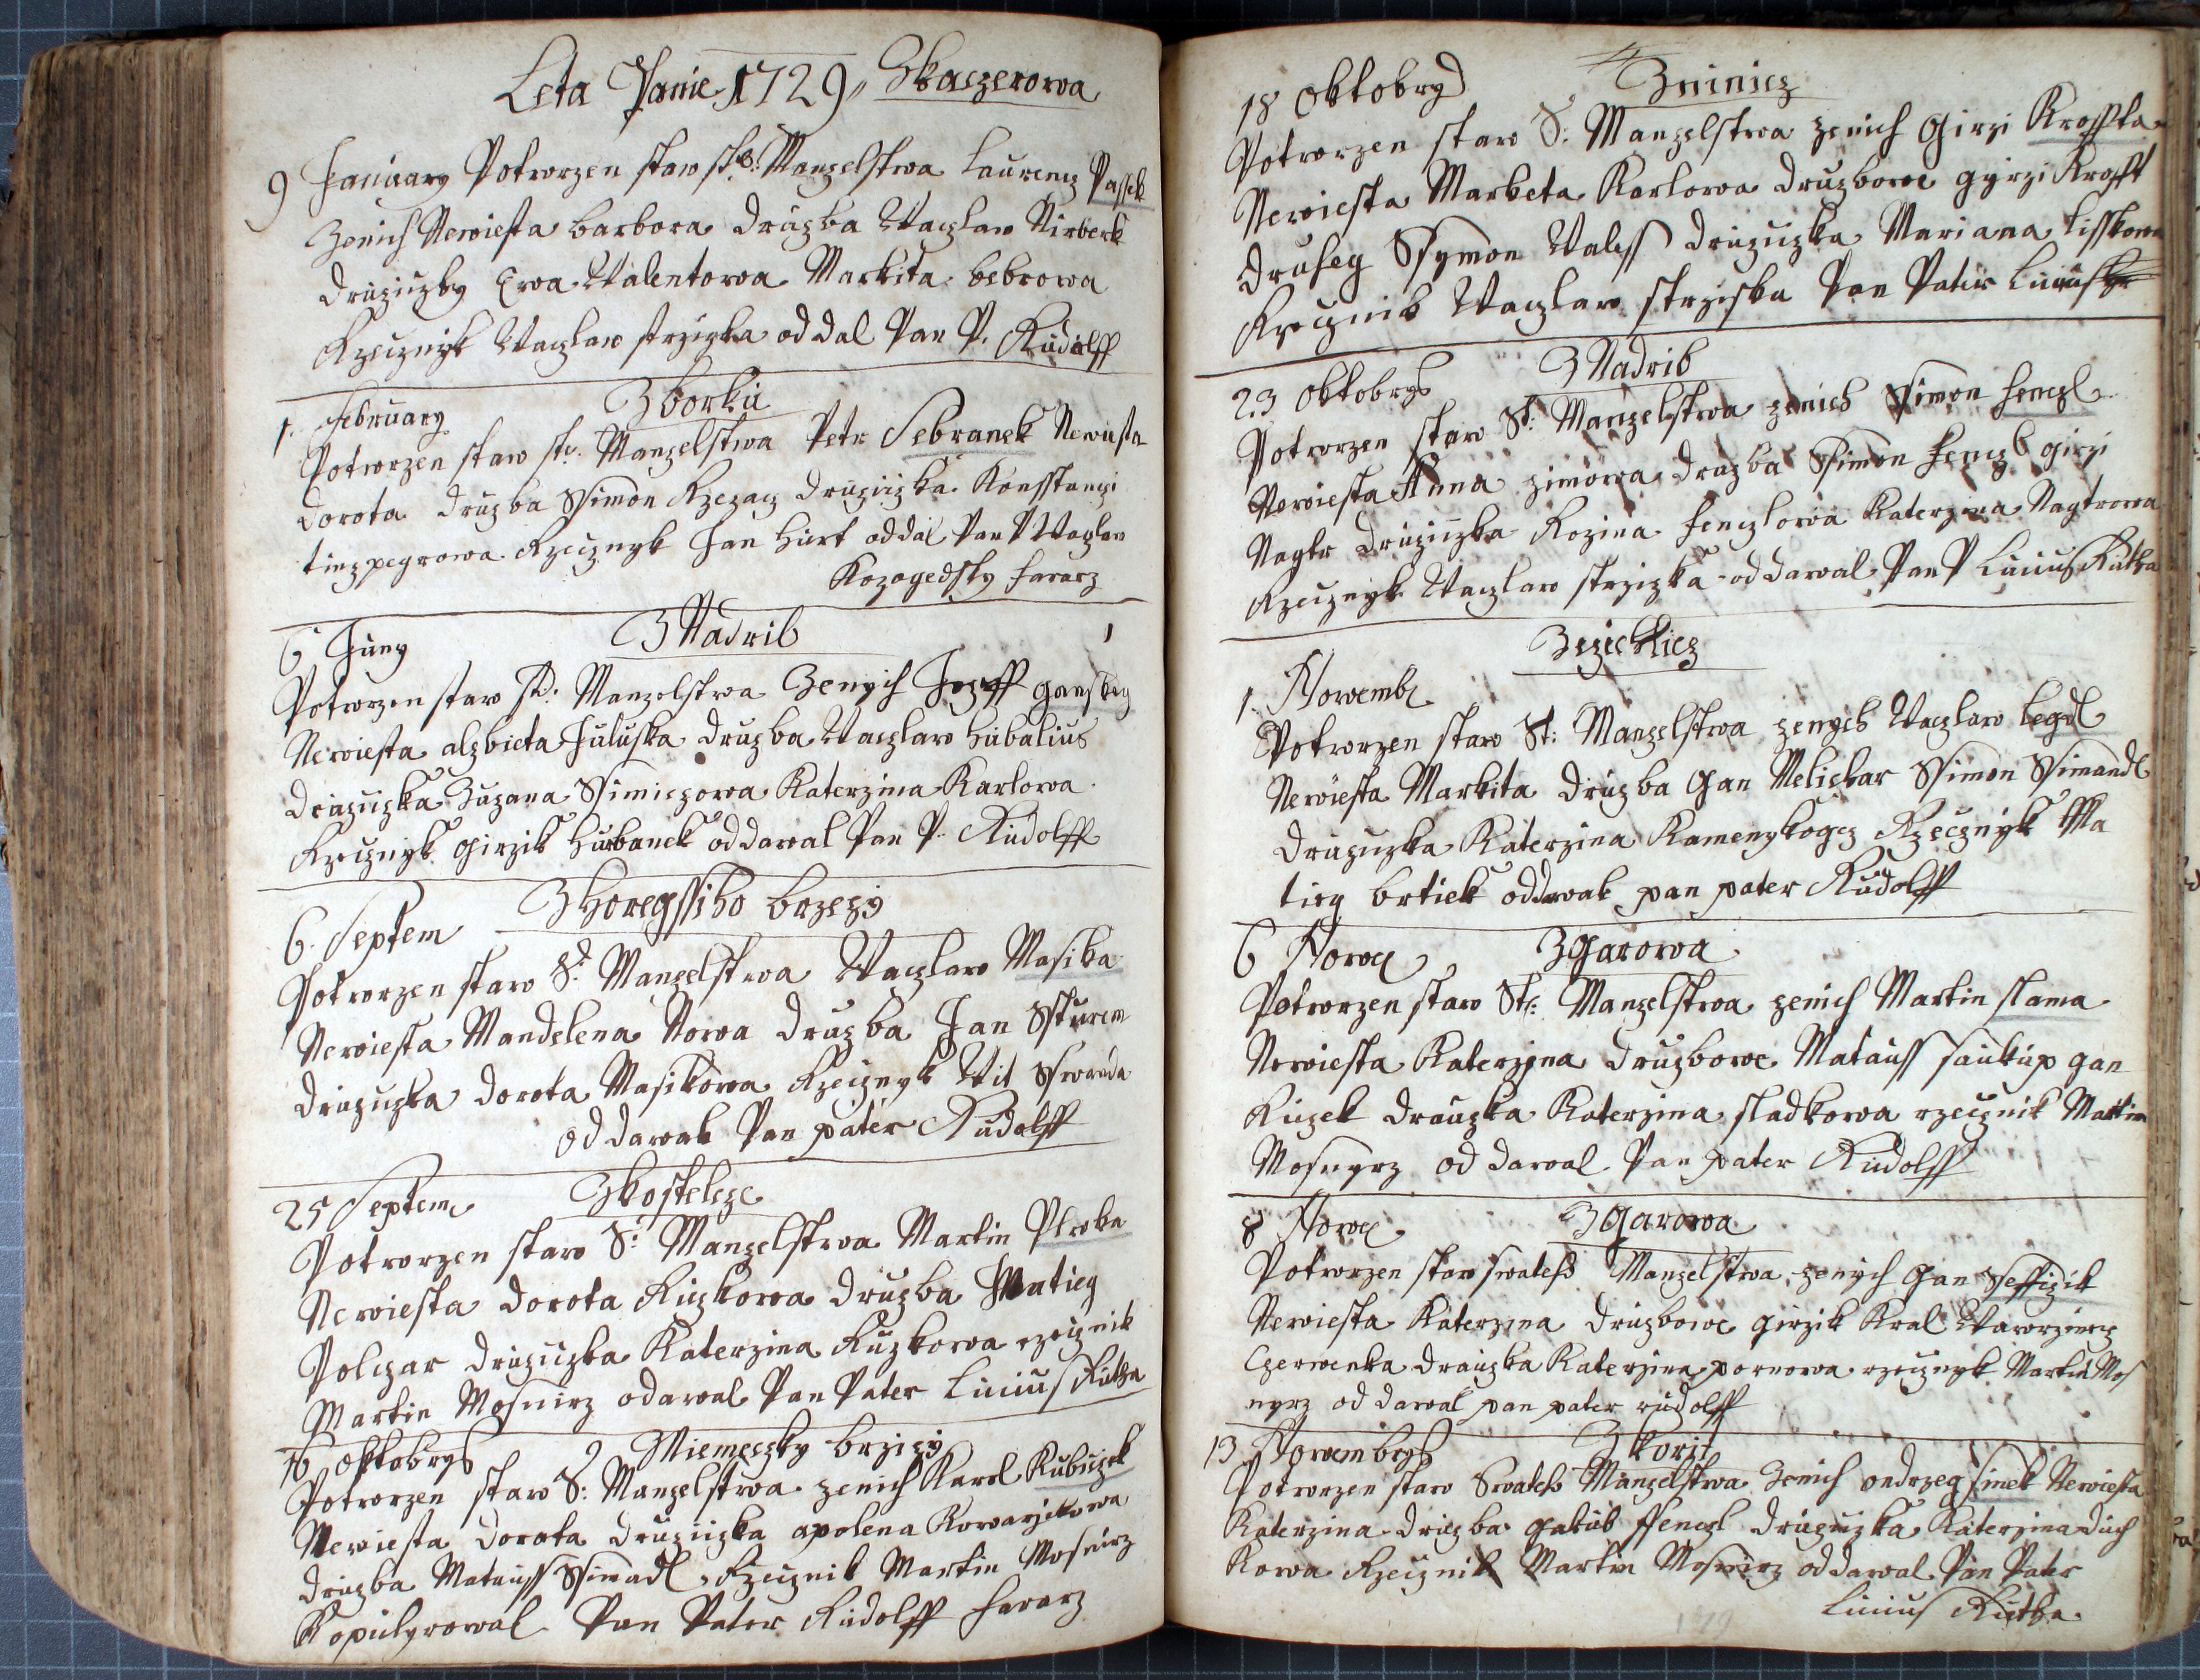 Leta Panie 1729, Skaczerowa
9 January Potworzen staw st: Manzelstwa Laurencz Passek
Zenich Newiesta barbora druzba Waczlaw Nirberk
druziczky Ewa Walentowa Markita bebrowa
Rzecznyk Waczlaw strziska oddal Pan P. Rudolff
1. February Zborku
Potworzen staw st: Manzelstwa Petr Sebranek Newiesta
dorota druzba Ssimon Rzezacz druziczka Konsstanczi
Rzecznyk Jan Hurt oddal Pan P Waczlaw
Kozogedsky fararz
6 Juny Z Nadrib
Potworzen staw st: Manzelstwa Zenych Jozeff Gansky
Newiesta alzbieta Juluska druzba Waczlaw Hubalius
druzuzka Zuzana Ssimiczowa Katerzina Karlowa
Rzecznyk Girzik Hurbanek oddawal Pan P. Rudolff
6. Septem Z Horegssiho brzezy
Potworzen staw S: Manzelstwa Waczlaw Masika
Newiesta Mandelena Nowa druzba Jan Ssturem
druzuzka dorota Masikowa Rzecznyk Wit
oddawal Pan pater Rudolff
25 Septem Zkosteleze
Potworzen staw S: Manzelstwa Martin
Newiesta dorota Ruzkowa druzba Matieg
Polczar druzuzka Katerzina Ruzkowa rzecznik
Martin Mosnirz odawal Pan Pater Linius Rutha
16 oktobrys Z Niemeczky brzizy
Potworzen staw S: Manzelstwa zenich Karel Kubiczek
Newiesta dorota druziczka apolena Kowarzikowa
druzba Matauss Ssimadl, Rzecznik Martin Mosnirz
Kopulyrowal Pan Pater Rudolff fararz
18 Oktobry Zninicz
Potworzen staw S: Manzelstwa zenich Girzi Kroffta
Newiesta Marketa Karlowa druzbowe gyrzi Krofft
druheg Ssymon Waless druzuzka Mariana Lisskowa
Rzecznik Waczlaw strziska Pan Pater Linius
23 Oktobrys Z Nadrib
Potworzen staw St: Manzelstwa zenich Ssimon Henczl
Newiesta Anna zimowa druzba Ssimon Henczl girzi
Nagtr druziuzka Rozina Henczlowa Katerzina Nagtrowa
Rzecznyk Waczlaw strzizka oddawal Pan P Linius Rutha
1. Nowemb
Potworzen staw St: Manzelstwa zenych Waczlaw Legdl
Newiesta Markita druzba Gan Melichar Ssimon Ssimandl
druzuzka Katerzina Kamenykogcz Rzecznyk Ma
tieg brtiek oddawal pan pater Rudolff
6 Nowe Zgarowa
Potworzen staw St: Manzelstwa zenich Martin slama
Newiesta Katerzina druzbowe Matauss saukup gan
Ruzek drauzka Katerzina sladkowa rzecznik Martin
Mosnyrz oddawal Pan pater Rudolff
8 Nowe Zgarowa
Potworzen staw swateho Manzelstwa zenych Gan Sseffczik
Newiesta Katerzina druzbowe girzik Kral Wawrzincz
Czerwenka drauzka Katerzina pornowa rzecznyk Martin Mos
nyrz oddawal pan pater rudolff
13 Nowembrys Zkorit
Potworzen staw Swateho Manzelstwa Zenich ondrzeg simek Newiesta
Katerzina druzba gakub Henczl druzuzka Katerzina duch
kowa Rzecznik Martin Mosnirz oddawal Pan Pater
Linius Rutha.